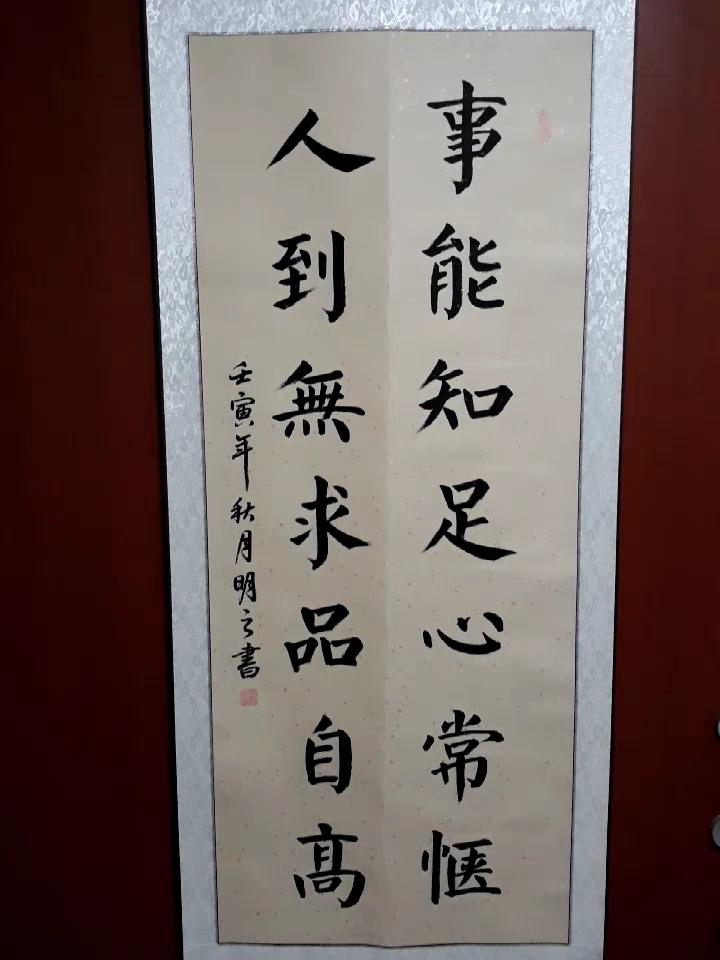 事能知足心常惬
人到無求品自高
壬寅年秋月明之書